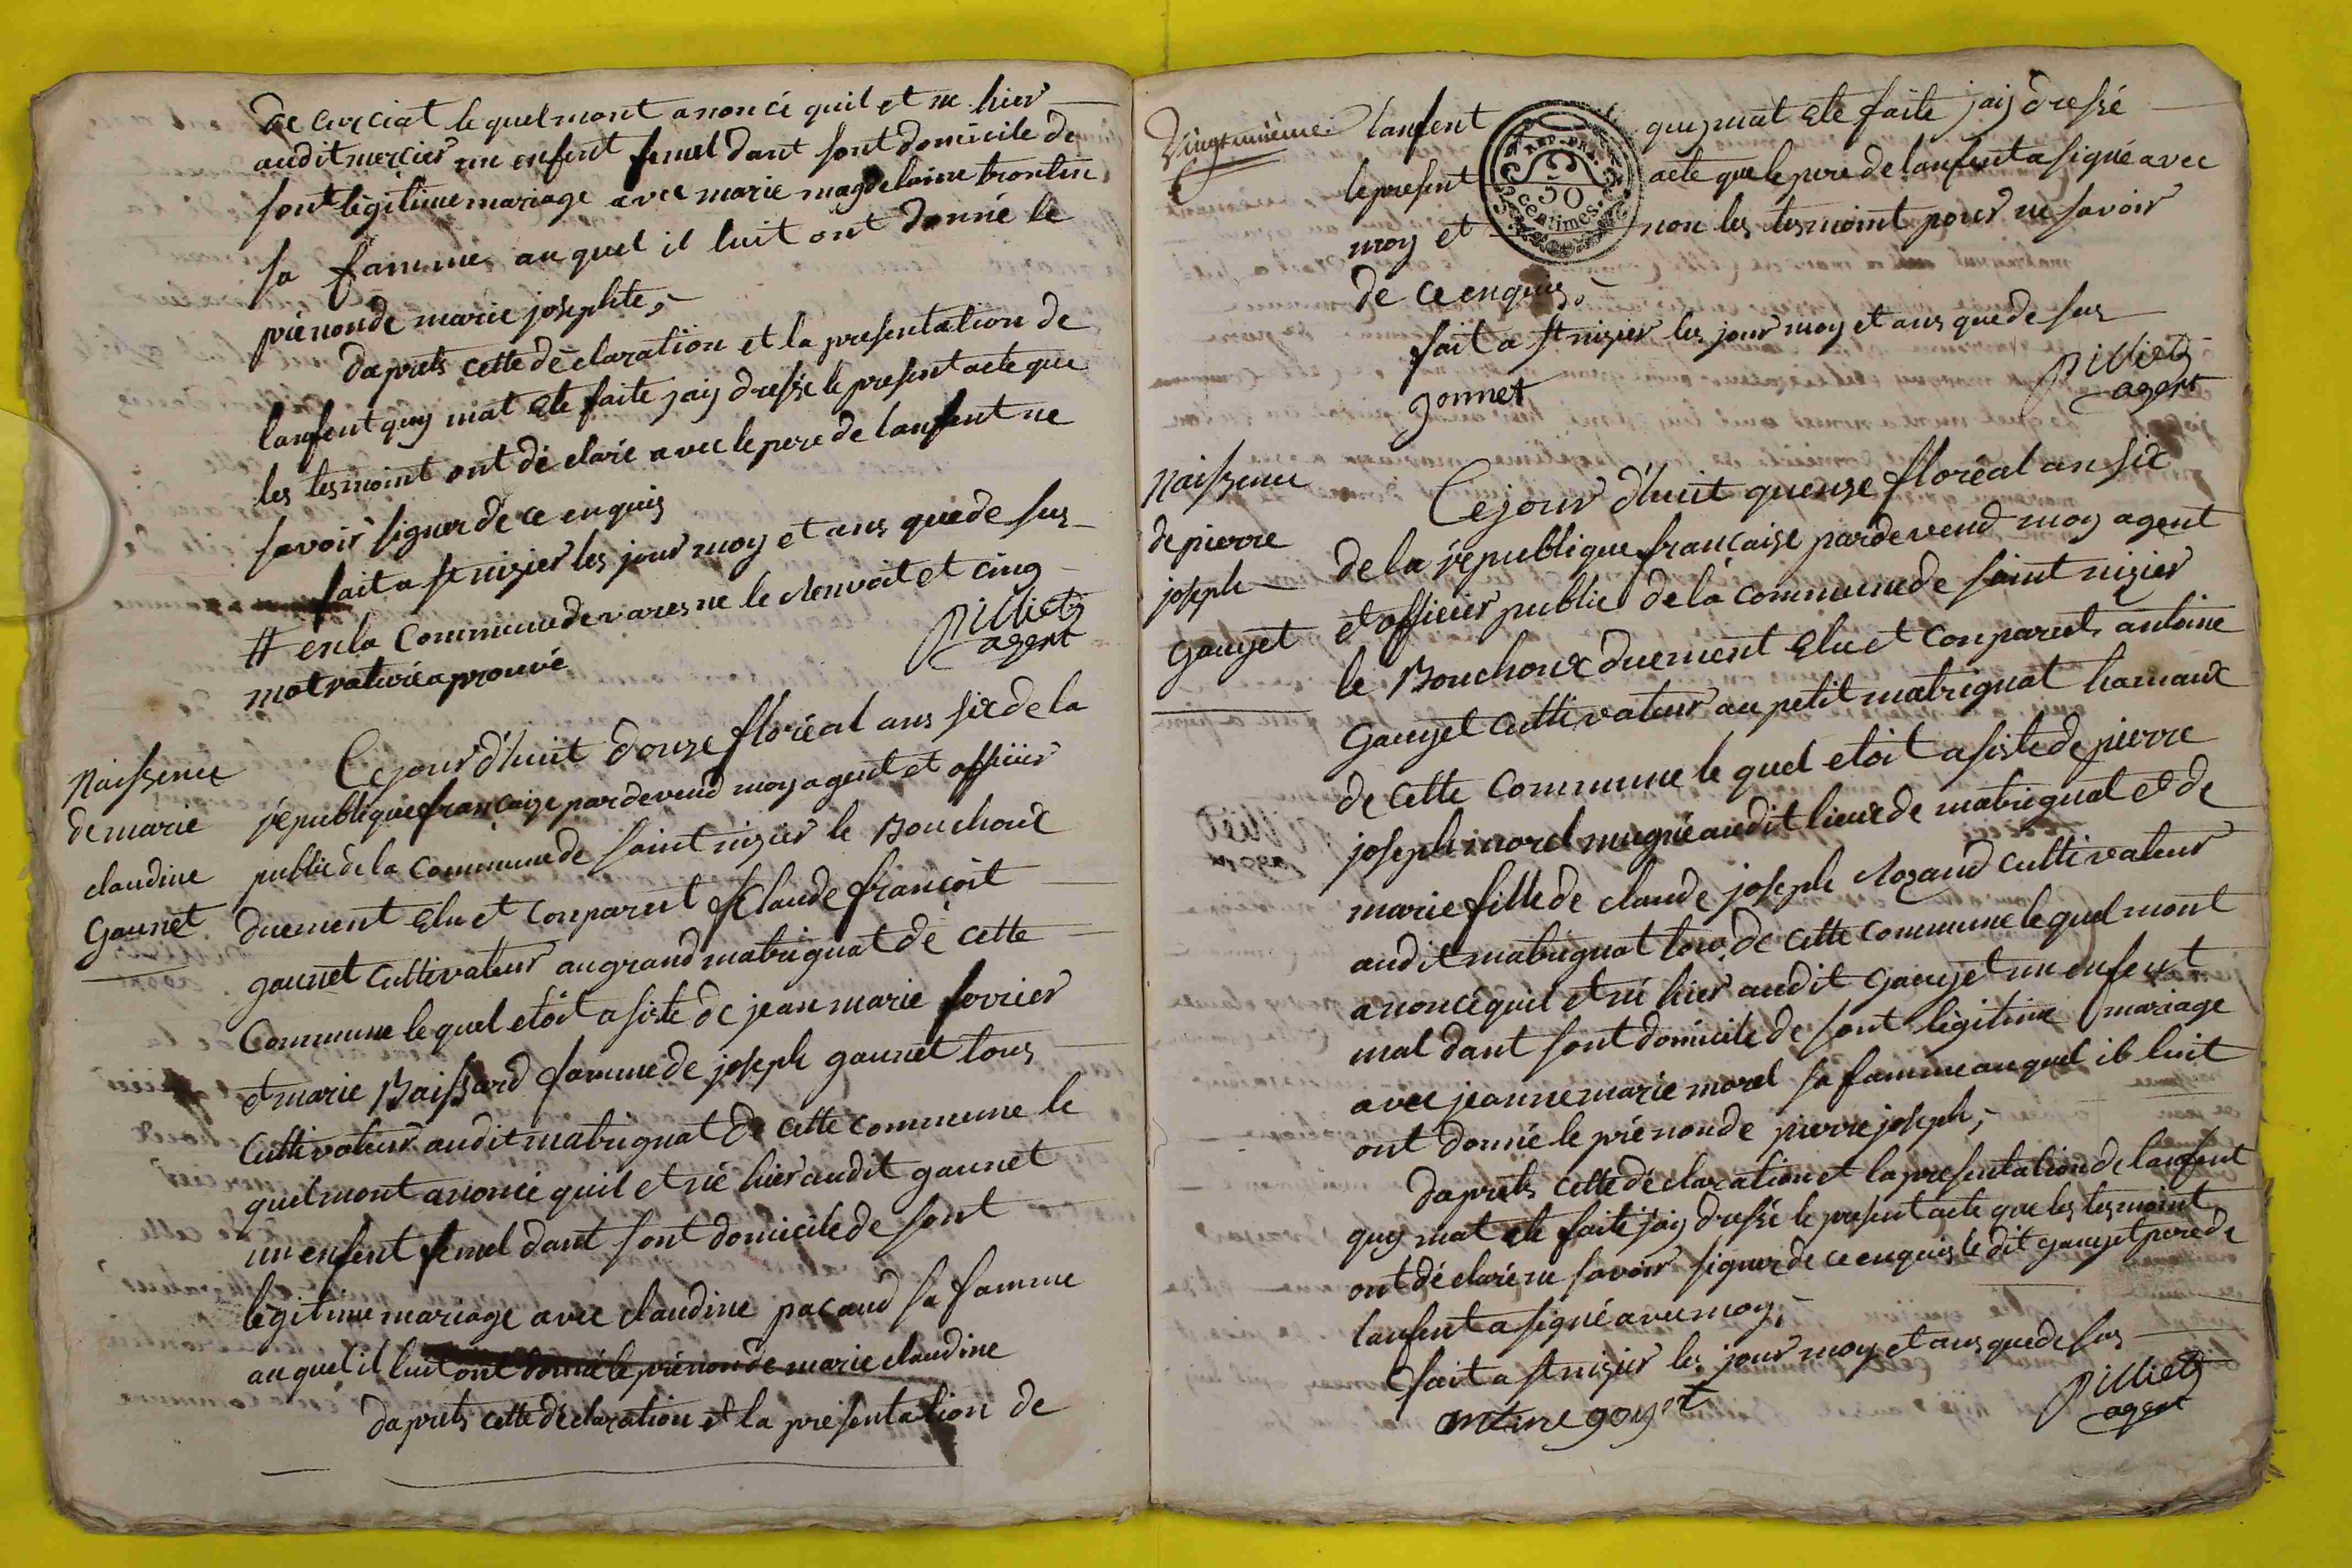 de curciat le quel mont anoncé quil et ne hier
audit mercier un enfent femel dant sont domicile de
sont légitime mariage avec marie magdelaine trontin
sa famme au quel il luit ont donné le
prénon de marie josephte,
daprets cette déclaration et la presentation de
lanfent quy mat eté faite jaiy dressé le present acte que
les tesmoint ont déclaré avec le pere de lanfent ne
savoir signer de ce enquis
fait a st nizier les jour moy et ans que de sus
# en la commune de varesne le
mot raturé aprouvé
pilliet
agent
Naissence
de marie
claudine
gaunet
Cejourd'huit douze floréal ans six de la
république française pardevend moy agent et officier
public de la commune de saint nizier le Bouchoux
duement élu et conparut Claude françoit
gaunet cultivateur au grand matrignat de cette
Commune le quel etoit asisté de jean marie fevrier
et marie Baissard famme de joseph gaunet tous
cultivateur audit matrignat de cette commune le
quel mont anoncé quil et né hier audit gaunet
un enfent femel dant sont domicile de sont
légitime mariage avec claudine pacaud sa famme
au quel il luit ont donné le prénon de marie claudine
daprets cette déclaration et la presentation de
Vingtnieme
lanfent quy mat eté faite jaiy dressé
le present acte que le pere de lanfent a signé avec
moy et non les tesmoint pour ne savoir
de ce enquis,
REP. FRA.
50
centimes.
fait a st nizier les jour moy et ans que de sus
gonnet
pilliet
agent
Naissence
de pierre
joseph
gauyet
Cejour d'huit quenze floréal an six
de la république française pardevend moy agent
et officier public de la commune de saint nizier
le Bouchoux duement élu et conparut antoine
gauyet cultivateur au petit matrignat hamaux
de cette commune le quel etoit asisté de pierre
joseph morel mugnié audit lieux de matrignat et de
marie fille de claude joseph cultivateur
audit matrignat tous de cette commune le quel mont
anoncé quil et né hier audit gauyet un enfent
mal dant sont domicile de sont légitime mariage
avec jeanne marie morel sa famme au quel il luit
ont donné le prénon de pierre joseph,
daprets cette déclaration et la presentation de lanfent
quy mat eté faite jaiy dressé le present acte que les tesmoint
ont déclaré ne savoir signer de ce enquis le dit gauyet pere de
lanfent a signé avec moy,
fait a st nizier les jour moy et ans que de sus
antine goyet
pilliet
agent